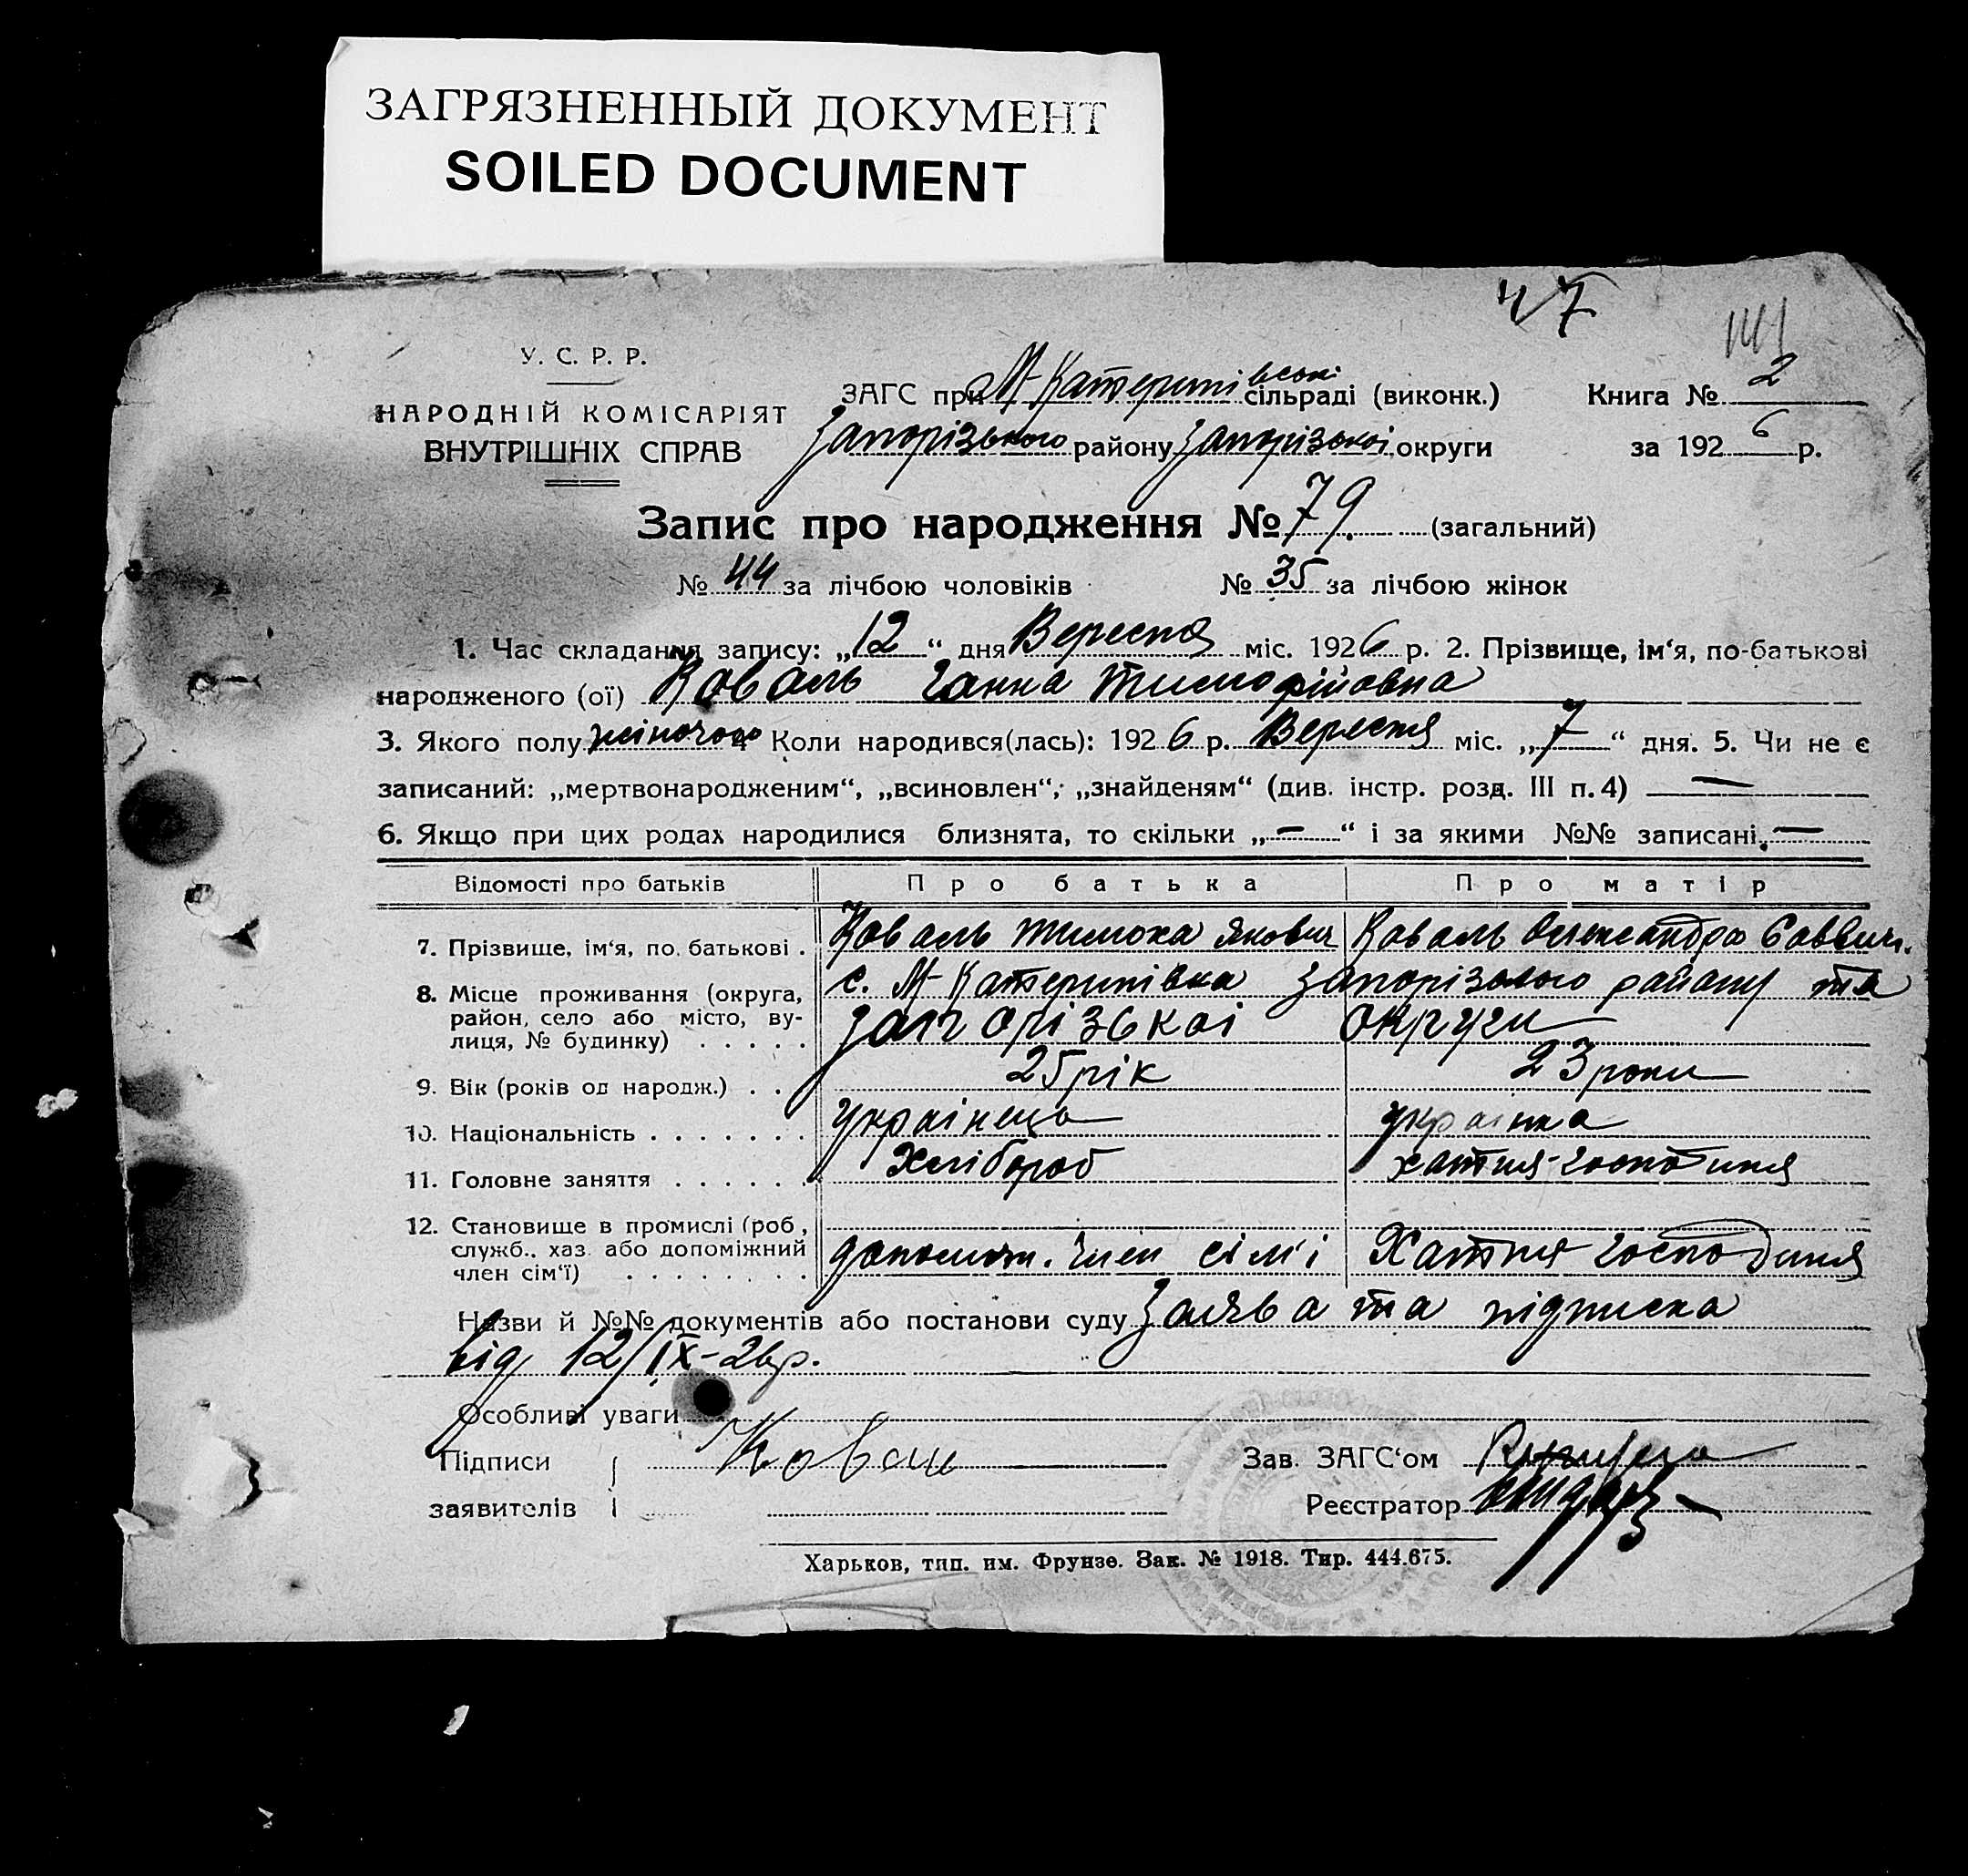 ЗАГРЯЗНЕННЫЙ ДОКУМЕНТ
SOILED DOCUMENT
47
141
У. С. Р. Р.
НАРОДНІЙ КОМІСАРІЯТ
ВНУТРІШНІХ СПРАВ
ЗАГС при М-Катеринівські сільраді (виконк.)
Книга № 2
Запорізького району Запорізькоі округи
за 1926 р.
Запис про народження № 79. (загальний)
№ 44 за лічбою чоловіків № 35 за лічбою жінок
1. Час складання запису: „12“ дня Вересня міс. 1926 р. 2. Прізвище, ім‘я, по-батькові
народженого (ої) Коваль Ганна Тимофійовна
3. Якого полу жіночого 4 Коли народився(лась): 1926 р. Вересня міс. „7“ дня. 5. Чи не є
записаний: „мертвонародженим“, „всиновлен“, „знайденям“ (див. інстр. розд. III п. 4) —
6. Якщо при цих родах народилися близнята, то скільки „—“ і за якими №№ записані —
Відомості про батьків Про батька Про матір
7. Прізвище, ім‘я, по батькові . Коваль Тимоха Якович Коваль Олександра Саввич.
8. Місце проживання (округа, с. М-Катеринівка Запорізького району та
район, село або місто, ву-
лиця, № будинку) . . . . . Запорізькоі округи
9. Вік (років од народж.) . . 25 рік 23 роки
10. Національність . . . . . . . Українець українка
11. Головне заняття . . . . . . Хлібороб хатня-господиня
12. Становище в промислі (роб.,
служб., хаз. або допоміжний
член сім‘ї) . . . . . . . . допоможн. член сімі Хатня господиня
Назви й №№ документів або постанови суду Заява та підписка
від 12/IX-26р.
Особливі уваги
Підписи Коваль Зав. ЗАГС‘ом
заявителів Реєстратор
Харьков, тип. им. Фрунзе. Зак. № 1918. Тир. 444.675.